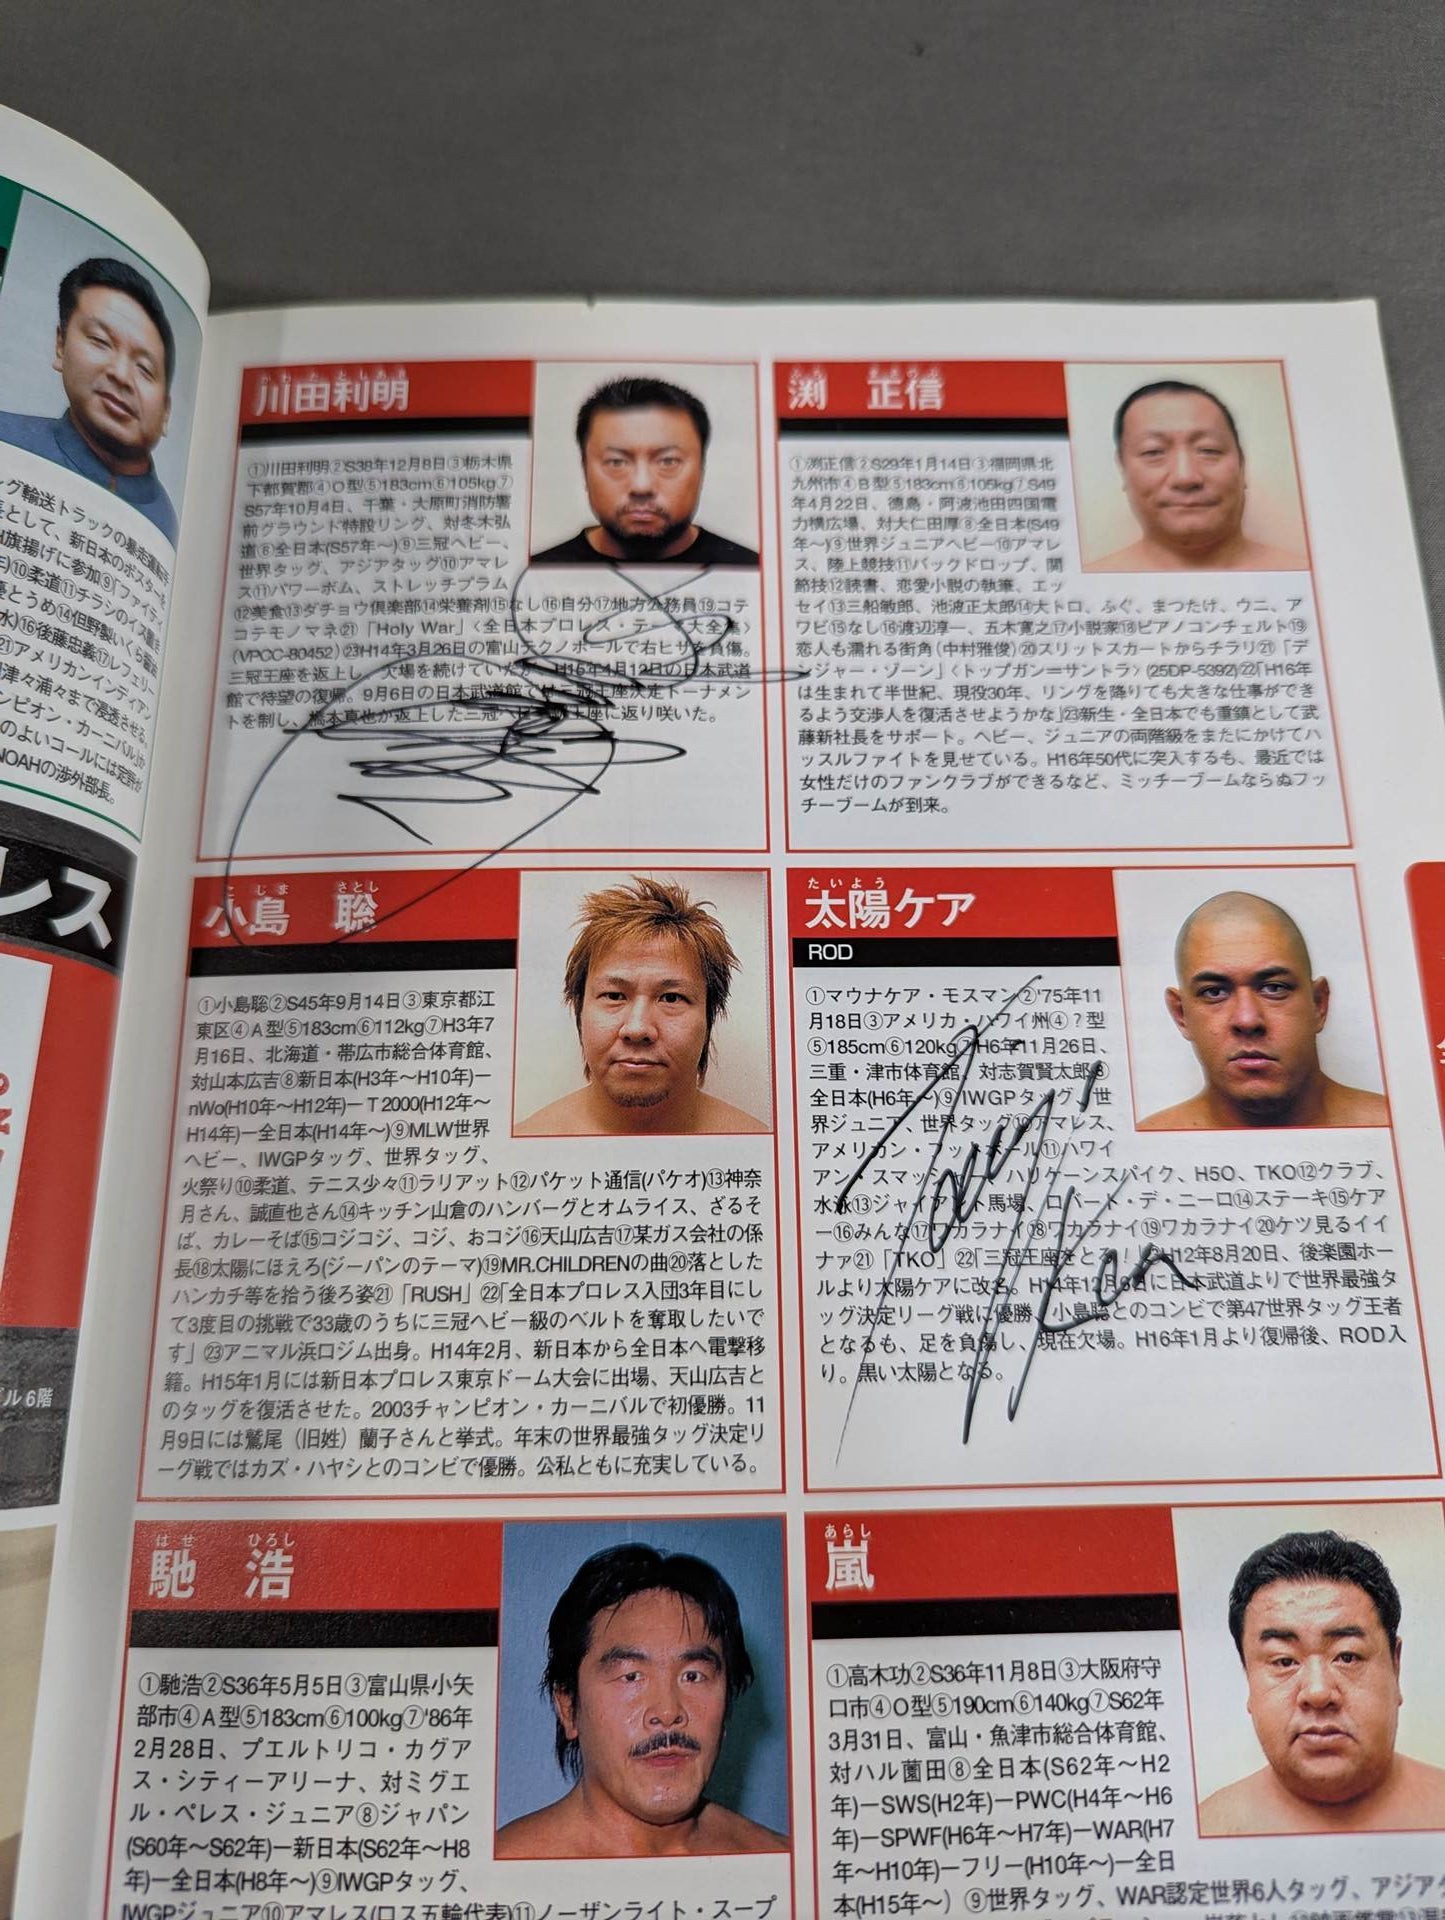 グ輸送トラックの暴走運転
長として、新日本のポスターを
旗揚げに参加⑨「ファイティ
⑩柔道⑪チラシのイス置き
優とうめ⑭但野製いくら醤油
水)⑯後藤忠義⑰レフェリー
㉑アメリカンインディアン
津々浦々まで浸透させる。
ンピオン・カーニバル」か
のよいコールには定評が
NOAHの渉外部長。
レス
ル 6階
かわ だ とし あき
川田利明
①川田利明②S38年12月8日③栃木県
下都賀郡④O型⑤183cm⑥105kg⑦
S57年10月4日、千葉・大原町消防署
前グラウンド特設リング、対冬木弘
道⑧全日本(S57年〜)⑨三冠ヘビー、
世界タッグ、アジアタッグ⑩アマレ
ス⑪パワーボム、ストレッチプラム
⑫美食⑬ダチョウ倶楽部⑭栄養剤⑮なし⑯自分⑰地方公務員⑲コテ
コテモノマネ㉑「Holy War」〈全日本プロレス・テーマ大全集〉
(VPCC-80452)㉓H14年3月26日の富山テクノボールで右ヒザを負傷。
三冠王座を返上し、欠場を続けていたが、H15年4月12日の日本武道
館で待望の復帰。9月6日の日本武道館では三冠王座決定トーナメン
トを制し、橋本真也が返上した三冠ヘビー級王座に返り咲いた。
ふち まさ のぶ
渕 正信
①渕正信②S29年1月14日③福岡県北
九州市④B型⑤183cm⑥105kg⑦S49
年4月22日、徳島・阿波池田四国電
力横広場、対大仁田厚⑧全日本(S49
年〜)⑨世界ジュニアヘビー⑩アマレ
ス、陸上競技⑪バックドロップ、関
節技⑫読書、恋愛小説の執筆、エッ
セイ⑬三船敏郎、池波正太郎⑭大トロ、ふぐ、まつたけ、ウニ、ア
ワビ⑮なし⑯渡辺淳一、五木寛之⑰小説家⑱ピアノコンチェルト⑲
恋人も濡れる街角(中村雅俊)⑳スリットスカートからチラリ㉑「デ
ンジャー・ゾーン」〈トップガン=サントラ〉(25DP-5392)㉒「H16年
は生まれて半世紀、現役30年、リングを降りても大きな仕事ができ
るよう交渉人を復活させようかな」㉓新生・全日本でも重鎮として武
藤新社長をサポート。ヘビー、ジュニアの両階級をまたにかけてハ
ッスルファイトを見せている。H16年50代に突入するも、最近では
女性だけのファンクラブができるなど、ミッチーブームならぬフッ
チーブームが到来。
こ じま さとし
小島 聡
①小島聡②S45年9月14日③東京都江
東区④A型⑤183cm⑥112kg⑦H3年7
月16日、北海道・帯広市総合体育館、
対山本広吉⑧新日本(H3年〜H10年)ー
nWo(H10年〜H12年)ーT2000(H12年〜
H14年)ー全日本(H14年〜)⑨MLW世界
ヘビー、IWGPタッグ、世界タッグ、
火祭り⑩柔道、テニス少々⑪ラリアット⑫パケット通信(パケオ)⑬神奈
月さん、誠直也さん⑭キッチン山倉のハンバーグとオムライス、ざるそ
ば、カレーそば⑮コジコジ、コジ、おコジ⑯天山広吉⑰某ガス会社の係
長⑱太陽にほえろ(ジーパンのテーマ)⑲MR.CHILDRENの曲⑳落とした
ハンカチ等を拾う後ろ姿㉑「RUSH」㉒「全日本プロレス入団3年目にし
て3度目の挑戦で33歳のうちに三冠ヘビー級のベルトを奪取したいで
す」㉓アニマル浜口ジム出身。H14年2月、新日本から全日本へ電撃移
籍。H15年1月には新日本プロレス東京ドーム大会に出場、天山広吉と
のタッグを復活させた。2003チャンピオン・カーニバルで初優勝。11
月9日には鷲尾（旧姓）蘭子さんと挙式。年末の世界最強タッグ決定リ
ーグ戦ではカズ・ハヤシとのコンビで優勝。公私ともに充実している。
たいよう
太陽ケア
ROD
①マウナケア・モスマン②'75年11
月18日③アメリカ・ハワイ州④？型
⑤185cm⑥120kg⑦H6年11月26日、
三重・津市体育館、対志賀賢太郎⑧
全日本(H6年〜)⑨IWGPタッグ、世
界ジュニア、世界タッグ⑩アマレス、
アメリカン・フットボール⑪ハワイ
アン・スマッシャー、ハリケーンスパイク、H5O、TKO⑫クラブ、
水泳⑬ジャイアント馬場、ロバート・デ・ニーロ⑭ステーキ⑮ケア
ー⑯みんな⑰ワカラナイ⑱ワカラナイ⑲ワカラナイ⑳ケツ見るイイ
ナァ㉑「TKO」㉒「三冠王座をとる！」㉓H12年8月20日、後楽園ホー
ルより太陽ケアに改名。H14年12月6日に日本武道よりで世界最強タ
ッグ決定リーグ戦に優勝、小島聡とのコンビで第47世界タッグ王者
となるも、足を負傷し、現在欠場。H16年1月より復帰後、ROD入
り。黒い太陽となる。
Taiyo Kea
は せ ひろし
馳 浩
①馳浩②S36年5月5日③富山県小矢
部市④A型⑤183cm⑥100kg⑦'86年
2月28日、プエルトリコ・カグア
ス・シティーアリーナ、対ミグエ
ル・ペレス・ジュニア⑧ジャパン
(S60年〜S62年)ー新日本(S62年〜H8
年)ー全日本(H8年〜)⑨IWGPタッグ、
IWGPジュニア⑩アマレス(ロス五輪代表)⑪ノーザンライト・スープ
あらし
嵐
①高木功②S36年11月8日③大阪府守
口市④O型⑤190cm⑥140kg⑦S62年
3月31日、富山・魚津市総合体育館、
対ハル薗田⑧全日本(S62年〜H2
年)ーSWS(H2年)ーPWC(H4年〜H6
年)ーSPWF(H6年〜H7年)ーWAR(H7
年〜H10年)ーフリー(H10年〜)ー全日
本(H15年〜) ⑨世界タッグ、WAR認定世界6人タッグ、アジアタ